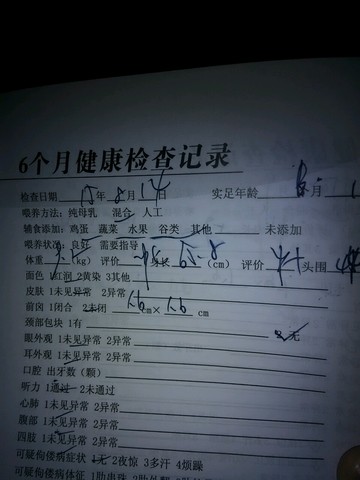 6个月健康检查记录
检查日期 15 年 8 月 14 日 实足年龄 6 月
喂养方法：纯母乳 混合 人工
辅食添加：鸡蛋 蔬菜 水果 谷类 其他 未添加
喂养状况：良好 需要指导
体重 (kg) 评价 身长 65.8 (cm) 评价 头围
面色 1红润 2黄染 3其他
皮肤 1未见异常 2异常
前囟 1闭合 2未闭 cm× cm
颈部包块 1有 2无
眼外观 1未见异常 2异常
耳外观 1未见异常 2异常
口腔 出牙数（颗）
听力 1通过 2未通过
心肺 1未见异常 2异常
腹部 1未见异常 2异常
四肢 1未见异常 2异常
可疑佝偻病症状 1无 2夜惊 3多汗 4烦躁
可疑佝偻病体征